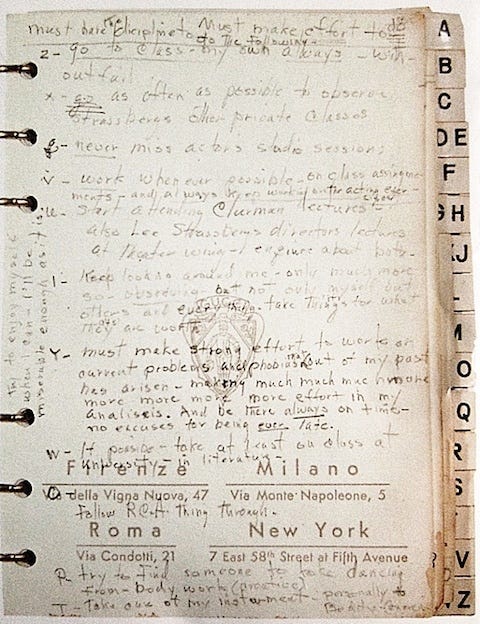 must have the discipline to Must make effort to do
to the following -
z - go to class - my own always - with-
out fail
x - go as often as possible to observe
Strassbergs other private classes
g - never miss actors studio sessions
v - work when ever possible - on class assignme-
ments - and always keep working on the acting exer-
cises
u - start attending Clurman lectures -
also Lee Strassbergs directors lectures
at theater wing - enquire about both -
l - keep looking around me - only much more
so - observing - but not only myself but
others and everything - take things for what
they are worth
GUCCI
y - must make strong effort to work on
current problems and phobias that out of my past
has arisen - making much much much more
more more more more effort in my
analisis. And be there always on time -
no excuses for being ever late.
w - if possible - take at least on class at
university - in literature -
Firenze
Milano
Via della Vigna Nuova, 47
Via Monte Napoleone, 5
follow RCA thing through.
Roma
New York
Via Condotti, 21
7 East 58th Street at Fifth Avenue
p - try to find someone to take dancing
from - body work (creative)
t - take care of my instrument - personally &
try to enjoy myself
when I can - I'll be
miserable enough as it is
A
B
C
DE
F
GH
IJ
L
M
O
Q
R
S
V
Z